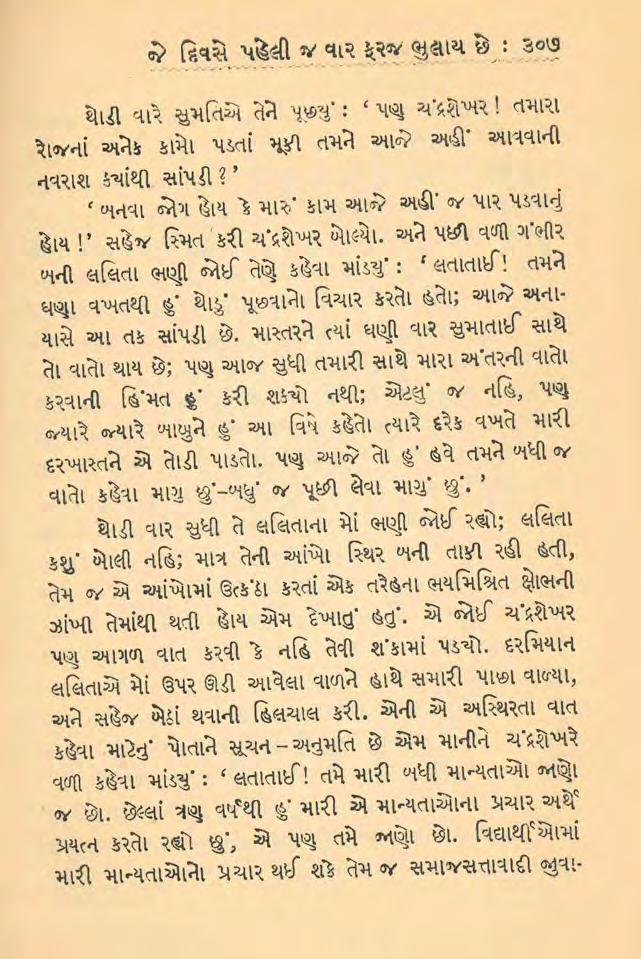 જે દિવસે પહેલી જ વાર ફરજ ભુલાય છે : ૩૦૭
થોડી વારે સુમતિએ તેને પૂછ્યું : ‘ પણ ચંદ્રશેખર ! તમારા
રોજનાં અનેક કામો પડતાં મૂકી તમને આજે અહીં આવવાની
નવરાશ ક્યાંથી સાંપડી ? ’
‘ બનવા જોગ હોય કે મારું કામ આજે અહીં જ પાર પડવાનું
હોય !’ સહેજ સ્મિત કરી ચંદ્રશેખર બોલ્યો. અને પછી વળી ગંભીર
બની લલિતા ભણી જોઈ તેણે કહેવા માંડ્યું : ‘ લતાતાઈ ! તમને
ઘણા વખતથી હું થોડું પૂછવાનો વિચાર કરતો હતો; આજે અના-
યાસે આ તક સાંપડી છે. માસ્તરને ત્યાં ઘણી વાર સુમાતાઈ સાથે
તો વાતો થાય છે; પણ આજ સુધી તમારી સાથે મારા અંતરની વાતો
કરવાની હિંમત હું કરી શક્યો નથી; એટલું જ નહિ, પણ
જ્યારે જ્યારે બાબુને હું આ વિષે કહેતો ત્યારે દરેક વખતે મારી
દરખાસ્તને એ તોડી પાડતો. પણ આજે તો હું હવે તમને બધી જ
વાતો કહેવા માગુ છું–બધું જ પૂછી લેવા માગું છું. ’
થોડી વાર સુધી તે લલિતાના મોં ભણી જોઈ રહ્યો; લલિતા
કશું બોલી નહિ; માત્ર તેની આંખો સ્થિર બની તાકી રહી હતી,
તેમ જ એ આંખોમાં ઉત્કંઠા કરતાં એક તરેહના ભયમિશ્રિત ક્ષોભની
ઝાંખી તેમાંથી થતી હોય એમ દેખાતું હતું. એ જોઈ ચંદ્રશેખર
પણ આગળ વાત કરવી કે નહિ તેવી શંકામાં પડ્યો. દરમિયાન
લલિતાએ મોં ઉપર ઊડી આવેલા વાળને હાથે સમારી પાછા વાળ્યા,
અને સહેજ બેઠાં થવાની હિલચાલ કરી. એની એ અસ્થિરતા વાત
કહેવા માટેનું પોતાને સૂચન – અનુમતિ છે એમ માનીને ચંદ્રશેખરે
વળી કહેવા માંડ્યું : ‘ લતાતાઈ ! તમે મારી બધી માન્યતાઓ જાણો
જ છો. છેલ્લાં ત્રણ વર્ષથી હું મારી એ માન્યતાઓના પ્રચાર અર્થે
પ્રયત્ન કરતો રહ્યો છું, એ પણ તમે જાણો છો. વિદ્યાર્થીઓમાં
મારી માન્યતાઓનો પ્રચાર થઈ શકે તેમ જ સમાજસત્તાવાદી જુવા-